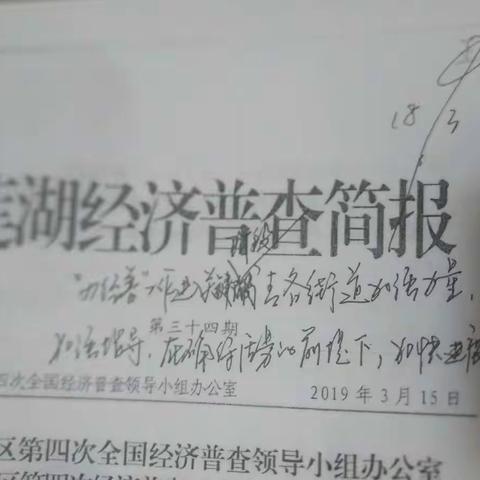 18/3
芜湖经济普查简报
阶段
"四经普"工作进入 请各街道加强力量，
第三十四期
加强指导，在确保质量的前提下，加快进度
四次全国经济普查领导小组办公室 2019年3月15日
区第四次全国经济普查领导小组办公室